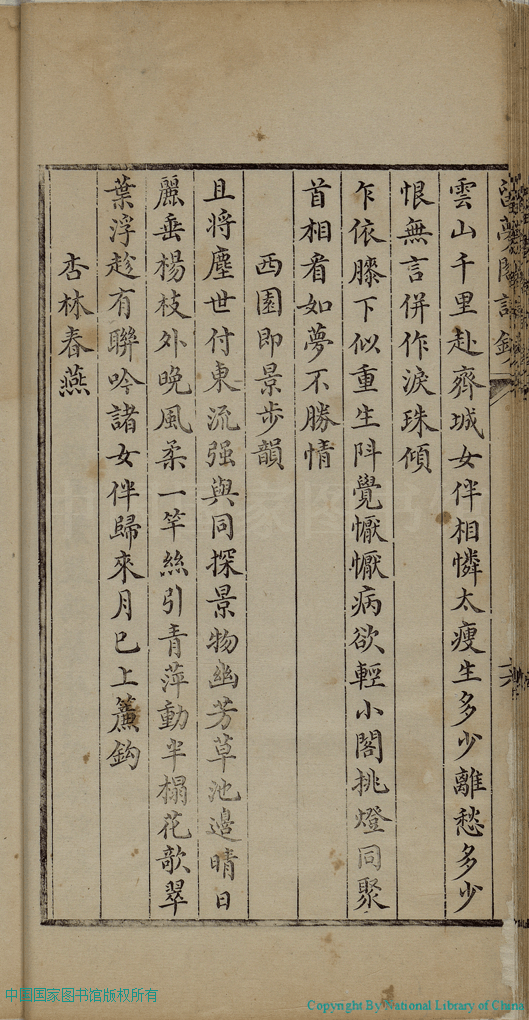 雲山千里赴齊城女伴相憐太瘦生多少離愁多少
恨無言併作淚珠傾
乍依膝下似重生陡覺懨懨病欲輕小閣挑燈同聚
首相看如夢不勝情
西園即景步韻
且將塵世付東流强與同探景物幽芳草池邊晴日
麗垂楊枝外晚風柔一竿絲引青萍動半榻花歌翠
葉浮趁有聯吟諸女伴歸來月已上簾鈎
杏林春燕
中国国家图书馆版权所有
Copyright By National Library of China